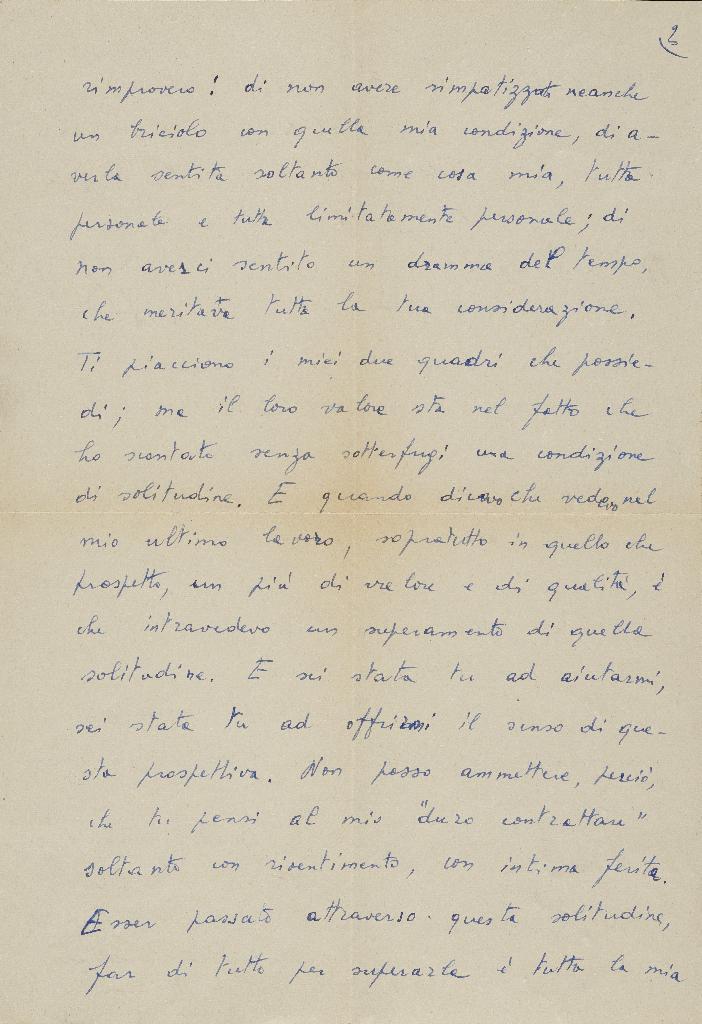 2
rimprovero! di non avere simpatizzato neanche
un briciolo con quella mia condizione, di a-
verla sentita soltanto come cosa mia, tutta
personale e tutta limitatamente personale; di
non averci sentito un dramma del tempo,
che meritava tutta la tua considerazione.
Ti piacciono i miei due quadri che possie-
di; ma il loro valore sta nel fatto che
ho scontato senza sotterfugi una condizione
di solitudine. E quando dicevo che vedevo nel
mio ultimo lavoro, sopratutto in quello che
prospetto, un più di valore e di qualità, è
che intravedevo un superamento di quella
solitudine. E sei stata tu ad aiutarmi,
sei stata tu ad offrirmi il senso di que-
sta prospettiva. Non posso ammettere, perciò,
che tu pensi al mio "duro contrattare"
soltanto con risentimento, con intima ferita.
Esser passato attraverso questa solitudine,
far di tutto per superarla è tutta la mia